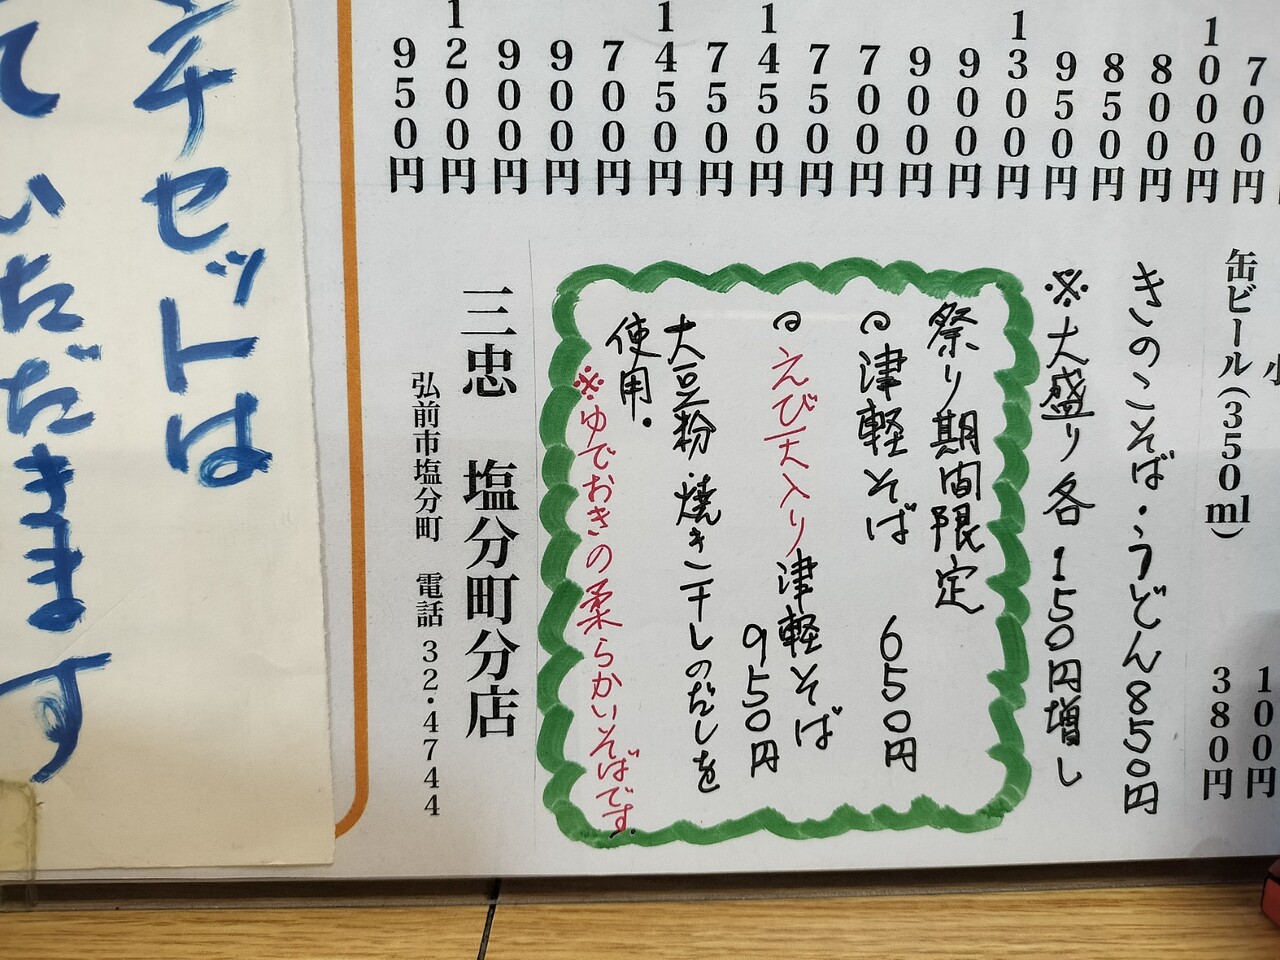 700円
1000円
800円
850円
950円
1300円
900円
900円
700円
750円
1450円
750円
1450円
700円
900円
900円
1200円
950円
小
100円
缶ビール(350ml) 380円
きのこそば・うどん850円
※大盛り各150円増し
祭り期間限定
の津軽そば 650円
のえび天入り津軽そば
950円
大豆粉・焼き干しのだしを
使用.
※ゆでおきの柔らかいそばです.
三忠 塩分町分店
弘前市塩分町 電話 32・4744
ンチセットは
ていただきます